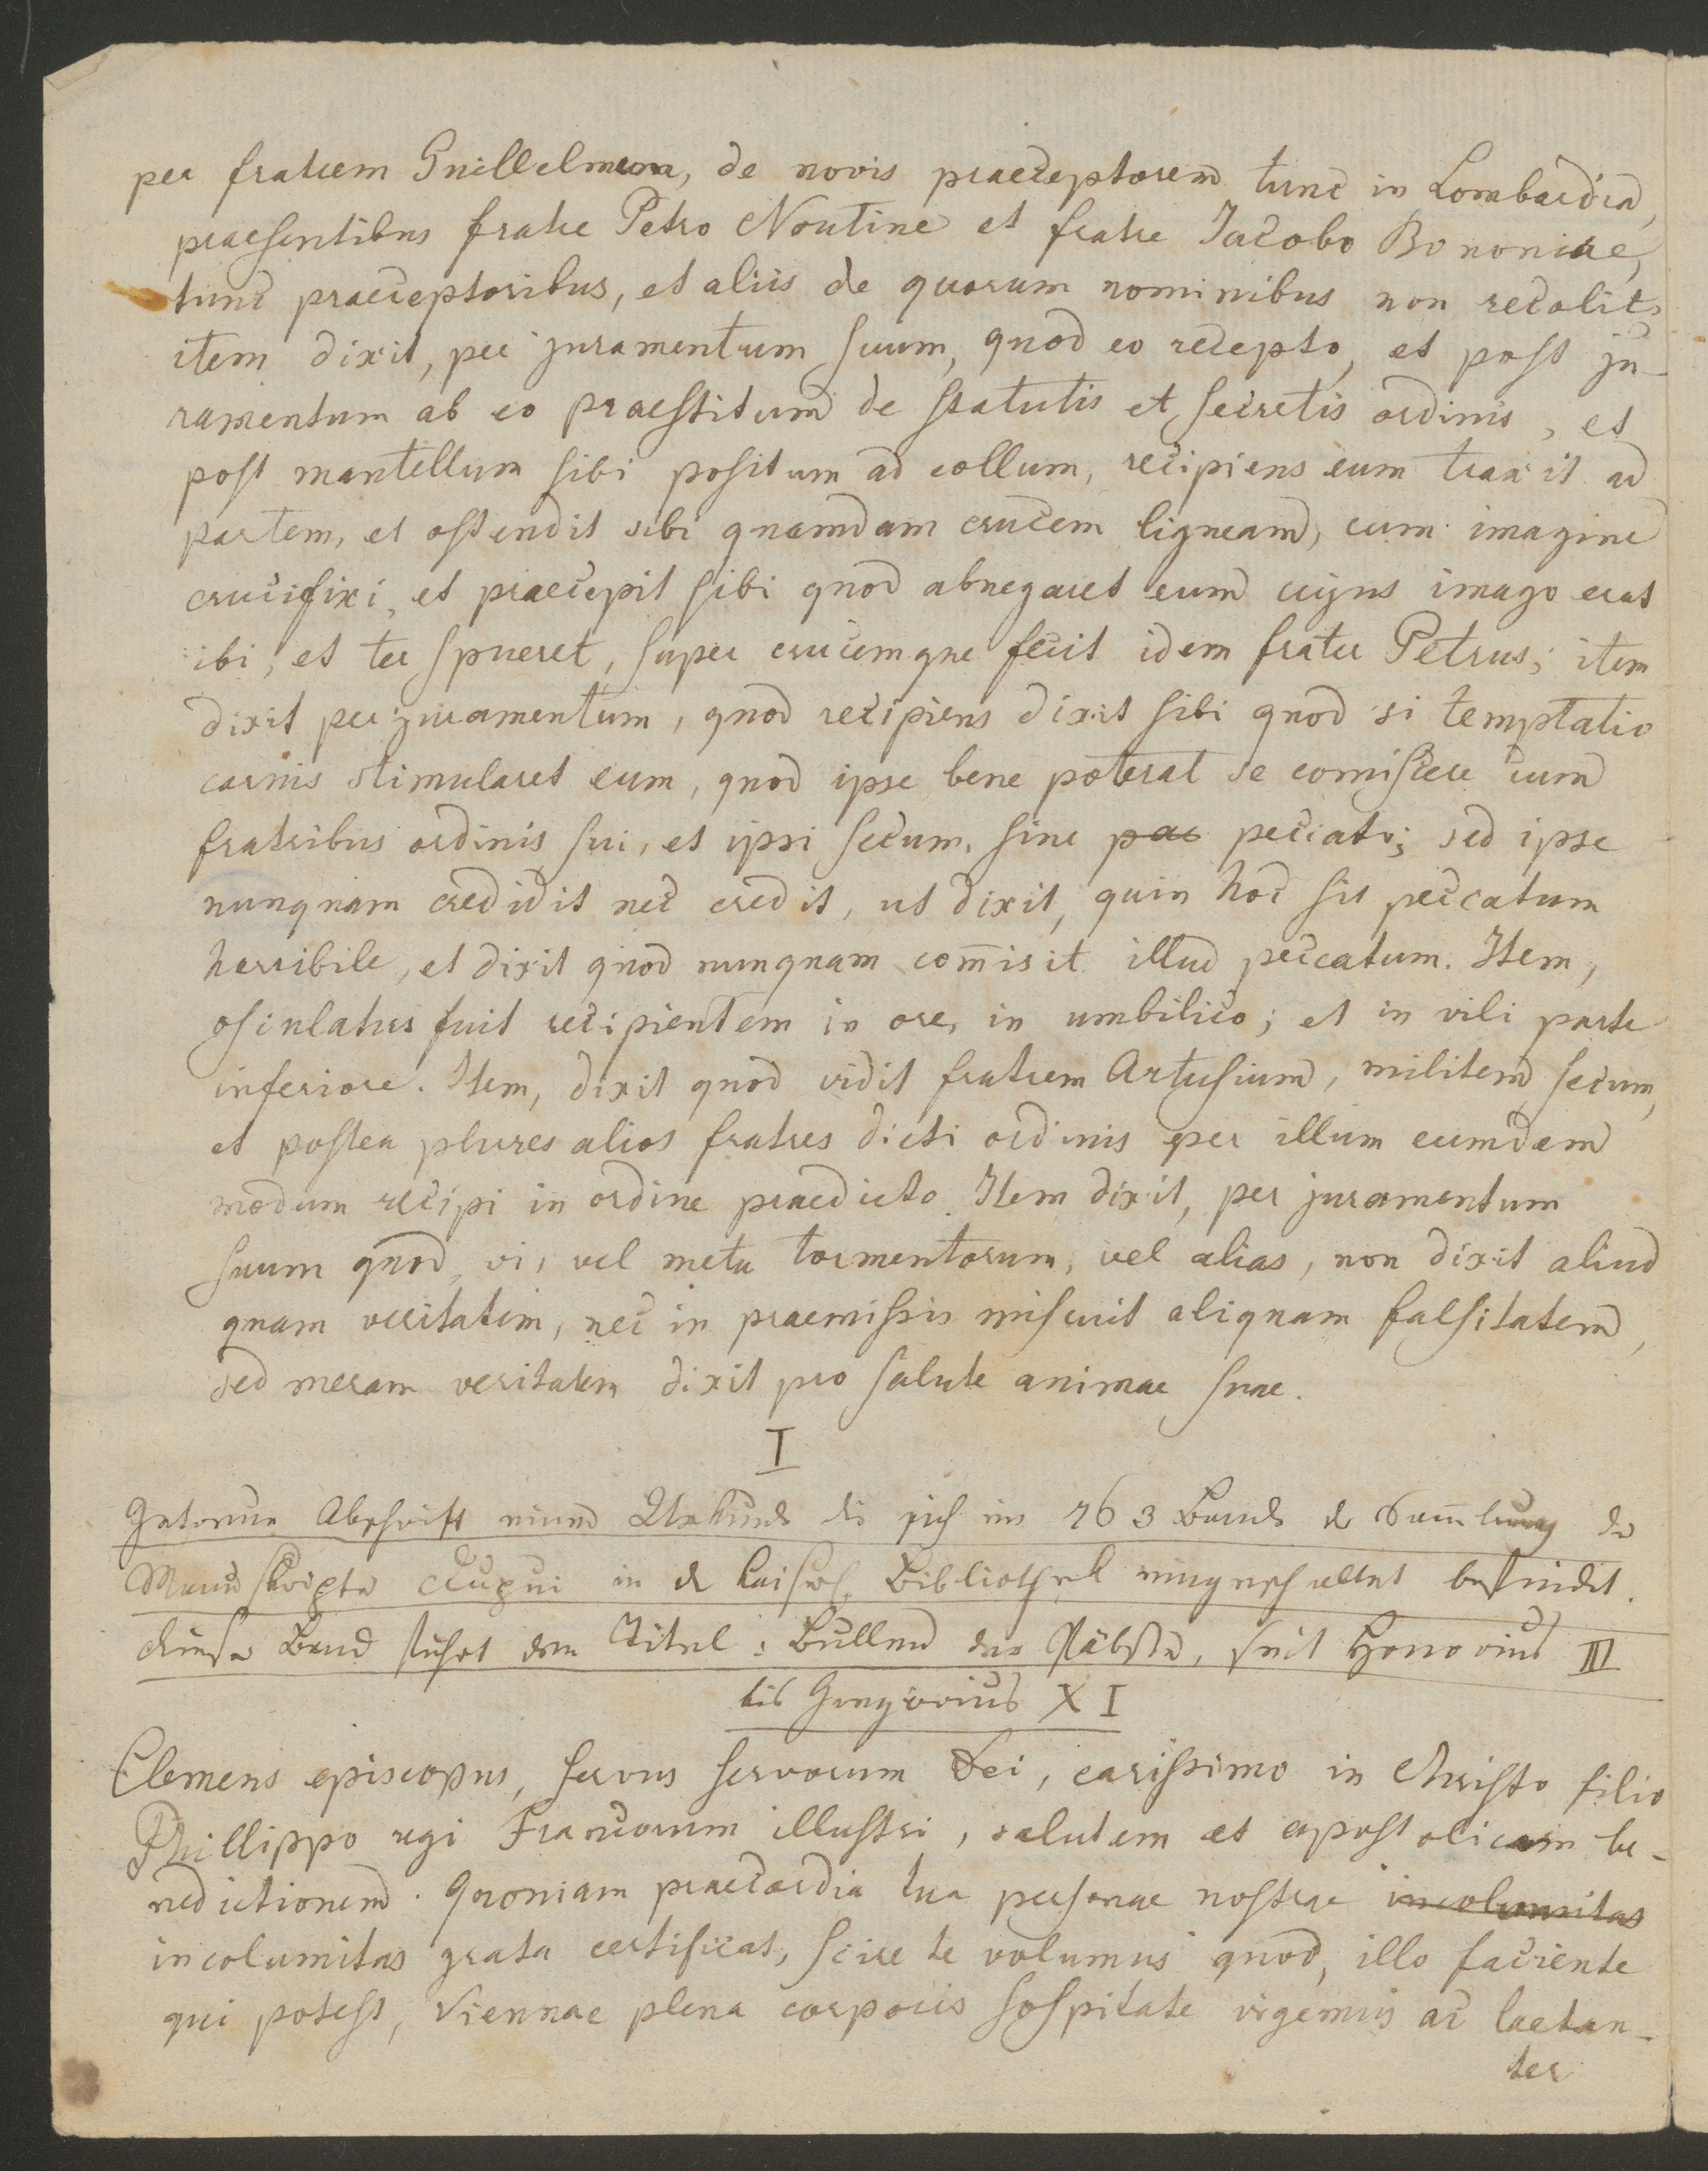 per fratrem Guillelmum, de novis praeceptorem tunc in Lombardia,
praesentibus fratre Petro Noutine et fratre Jacobo Bononiae,
tunc praeceptoribus, et aliis de quorum nominibus non recolit;
item dixit, per juramentum suum, quod eo recepto, et post ju-
ramentum ab eo praestitum de statutis et secretis ordinis, et
post mantellum sibi positum ad collum, recipiens eum traxit ad
partem, et ostendit sibi quamdam crucem ligneam, cum imagine
crucifixi, et praecepit sibi quod abnegaret eum cujus imago erat
ibi, et ter spueret, super crucemque fecit idem frater Petrus; item
dixit per juramentum, quod recipiens dixit sibi quod si temptatio
carnis stimularet eum, quod ipse bene poterat se comiscere cum
fratribus ordinis sui, et ipsi secum, sine pac peccato; sed ipse
nunquam credidit nec credit, ut dixit, quin hoc sit peccatum
horribile, et dixit quod nunquam com̄isit illud peccatum. Item,
osculatus fuit recipientem in ore, in umbilico; et in vili parte
inferiore. Item, dixit quod vidit fratrem Artusium, militem secum,
et postea plures alios fratres dicti ordinis per illum eumdem
modum recipi in ordine praedicto. Item dixit, per juramentum
suum quod, vi, vel metu tormentorum, vel alias, non dixit aliud
quam veritatem, nec in praemissis miscuit aliquam falsitatem,
sed meram veritatem dixit pro salute animae suae.
I
Getreue Abschrift einer Urkunde die sich im 763 Bande der Sam̄lung der
Manuskripte Dupui in der Kaiserl. Bibliothek eingeschaltet befindet.
dieser Band führt den Titel: Bullen der Päbste, seit Honorius III
bis Gregorius XI
Clemens episcopus, servus servorum Dei, carissimo in Christo filio
Phillippo regi Francorum illustri, salutem et apostolicam be-
nedictionem. Quoniam praecordia tua personae nostrae incolumitas
incolumitas grata certificat, scire te volumus quod, illo faciente
qui potest, Viennae plena corporis sospitate vigemus ac laetan-
ter